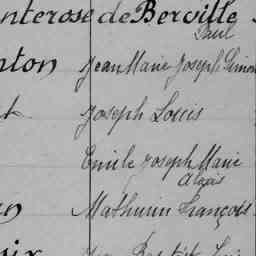 nterose de Berville
Paul
nton Jean Marie Joseph Simon
Joseph Louis
Emile Joseph Marie
Alexis
Mathurin François